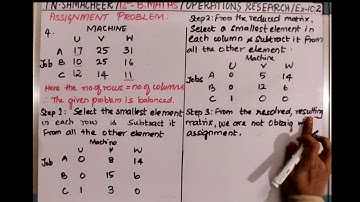 TN-SAMACHEER/12th B.MATHS/OPERATIONS RESEARCH/Ex-10.2
ASSIGNMENT PROBLEM:
4.
MACHINE
U V W
A 17 25 31
Job B 10 25 16
C 12 14 11
Here the no of rows = no of columns
∴ The given problem is balanced.
Step 1: Select the smallest element
in each row & Subtract it
from all the other element
Machine
U V W
Job A 0 8 14
B 0 15 6
C 1 3 0
Step 2: From the reduced matrix,
Select a smallest element in
each column & Subtract it from
all the other element.
Machine
U V W
Jobs A 0 5 14
B 0 12 6
C 1 0 0
Step 3: From the resolved, resulting
matrix, we are not obtaig
assignment.